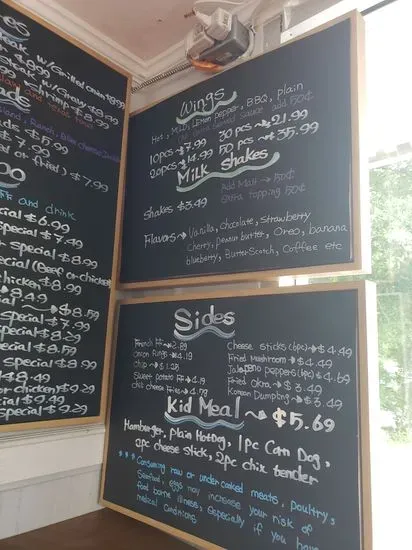 w/Grilled onion $8.99
$9.99
w/Gravy $8.99
shrimp $8.99
ads
Island, Ranch, Blue cheese
ds $5.99
$7.99
or fried) $7.99
and drink
special $6.99
special $7.49
special $8.99
special (Beef or chicken)
chicken $8.99
$8.49
special $7.99
special $8.29
special $8.59
special $8.99
$8.49
or chicken $9.29
special $9.29
Wings
Hot, Mild, Lemon pepper, BBQ, plain
sauce add 50¢
10pcs $7.99 30 pcs $21.99
20pcs $14.99 50 pcs $35.99
Milk shakes
Add Malt 50¢
Extra topping 50¢
Shakes $3.49
Flavors Vanilla, chocolate, Strawberry
cherry, peanut butter, Oreo, banana
blueberry, ButterScotch, Coffee etc
Sides
French FF 2.89
Onion Rungs 4.19
Chip $1.25
Sweet potato FF 4.19
chili cheese fries 4.59
Cheese sticks (6pc) $4.49
Fried Mushroom $4.49
Jalapeno peppers (6pc) $4.69
Fried Okra $3.49
Korean Dumpling $3.49
Kid Meal $5.69
Hamburger, Plain HotDog, 1pc Corn Dog,
2pc cheese stick, 2pc chix tender
*** Consuming raw or under cooked meats, poultry,
Seafood, eggs may increase your risk of
food borne illness, especially if you have
medical conditions